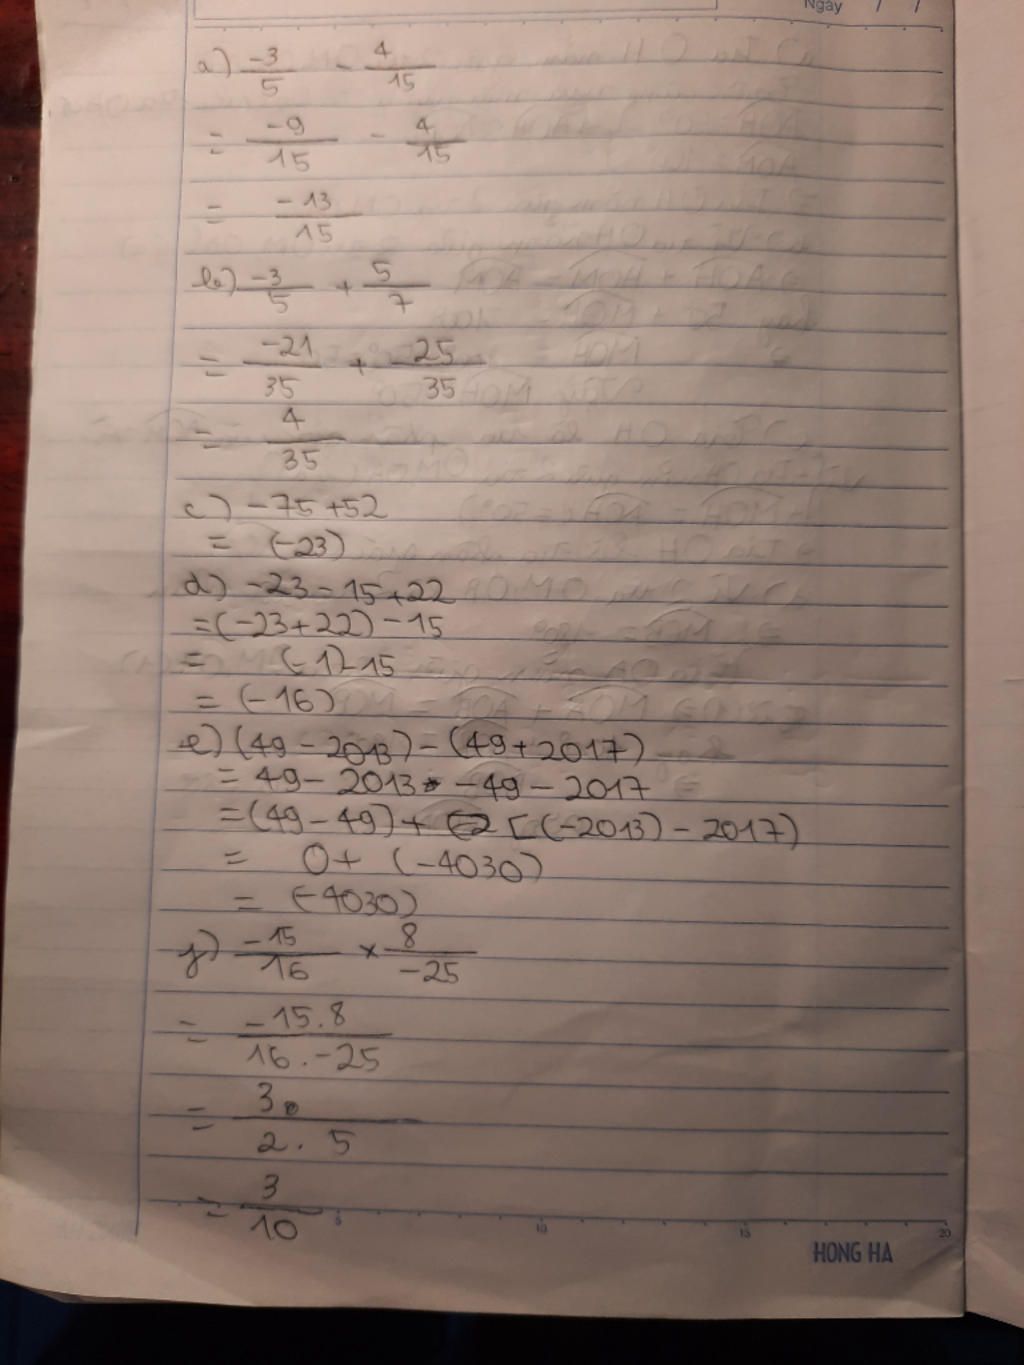 Ngày / /
a) -3/5 - 4/15
= -9/15 - 4/15
= -13/15
b) -3/5 + 5/7
= -21/35 + 25/35
= 4/35
c) -75+52
= (-23)
d) -23-15+22
=(-23+22)-15
= (-1)-15
= (-16)
e) (49-2013)-(49+2017)
= 49-2013 -49-2017
=(49-49)+ [(-2013)-2017)
= 0+ (-4030)
= (-4030)
f) -15/16 × 8/-25
= -15.8/16.-25
= 3/2.5
= 3/10
5 10 15 20
HONG HA